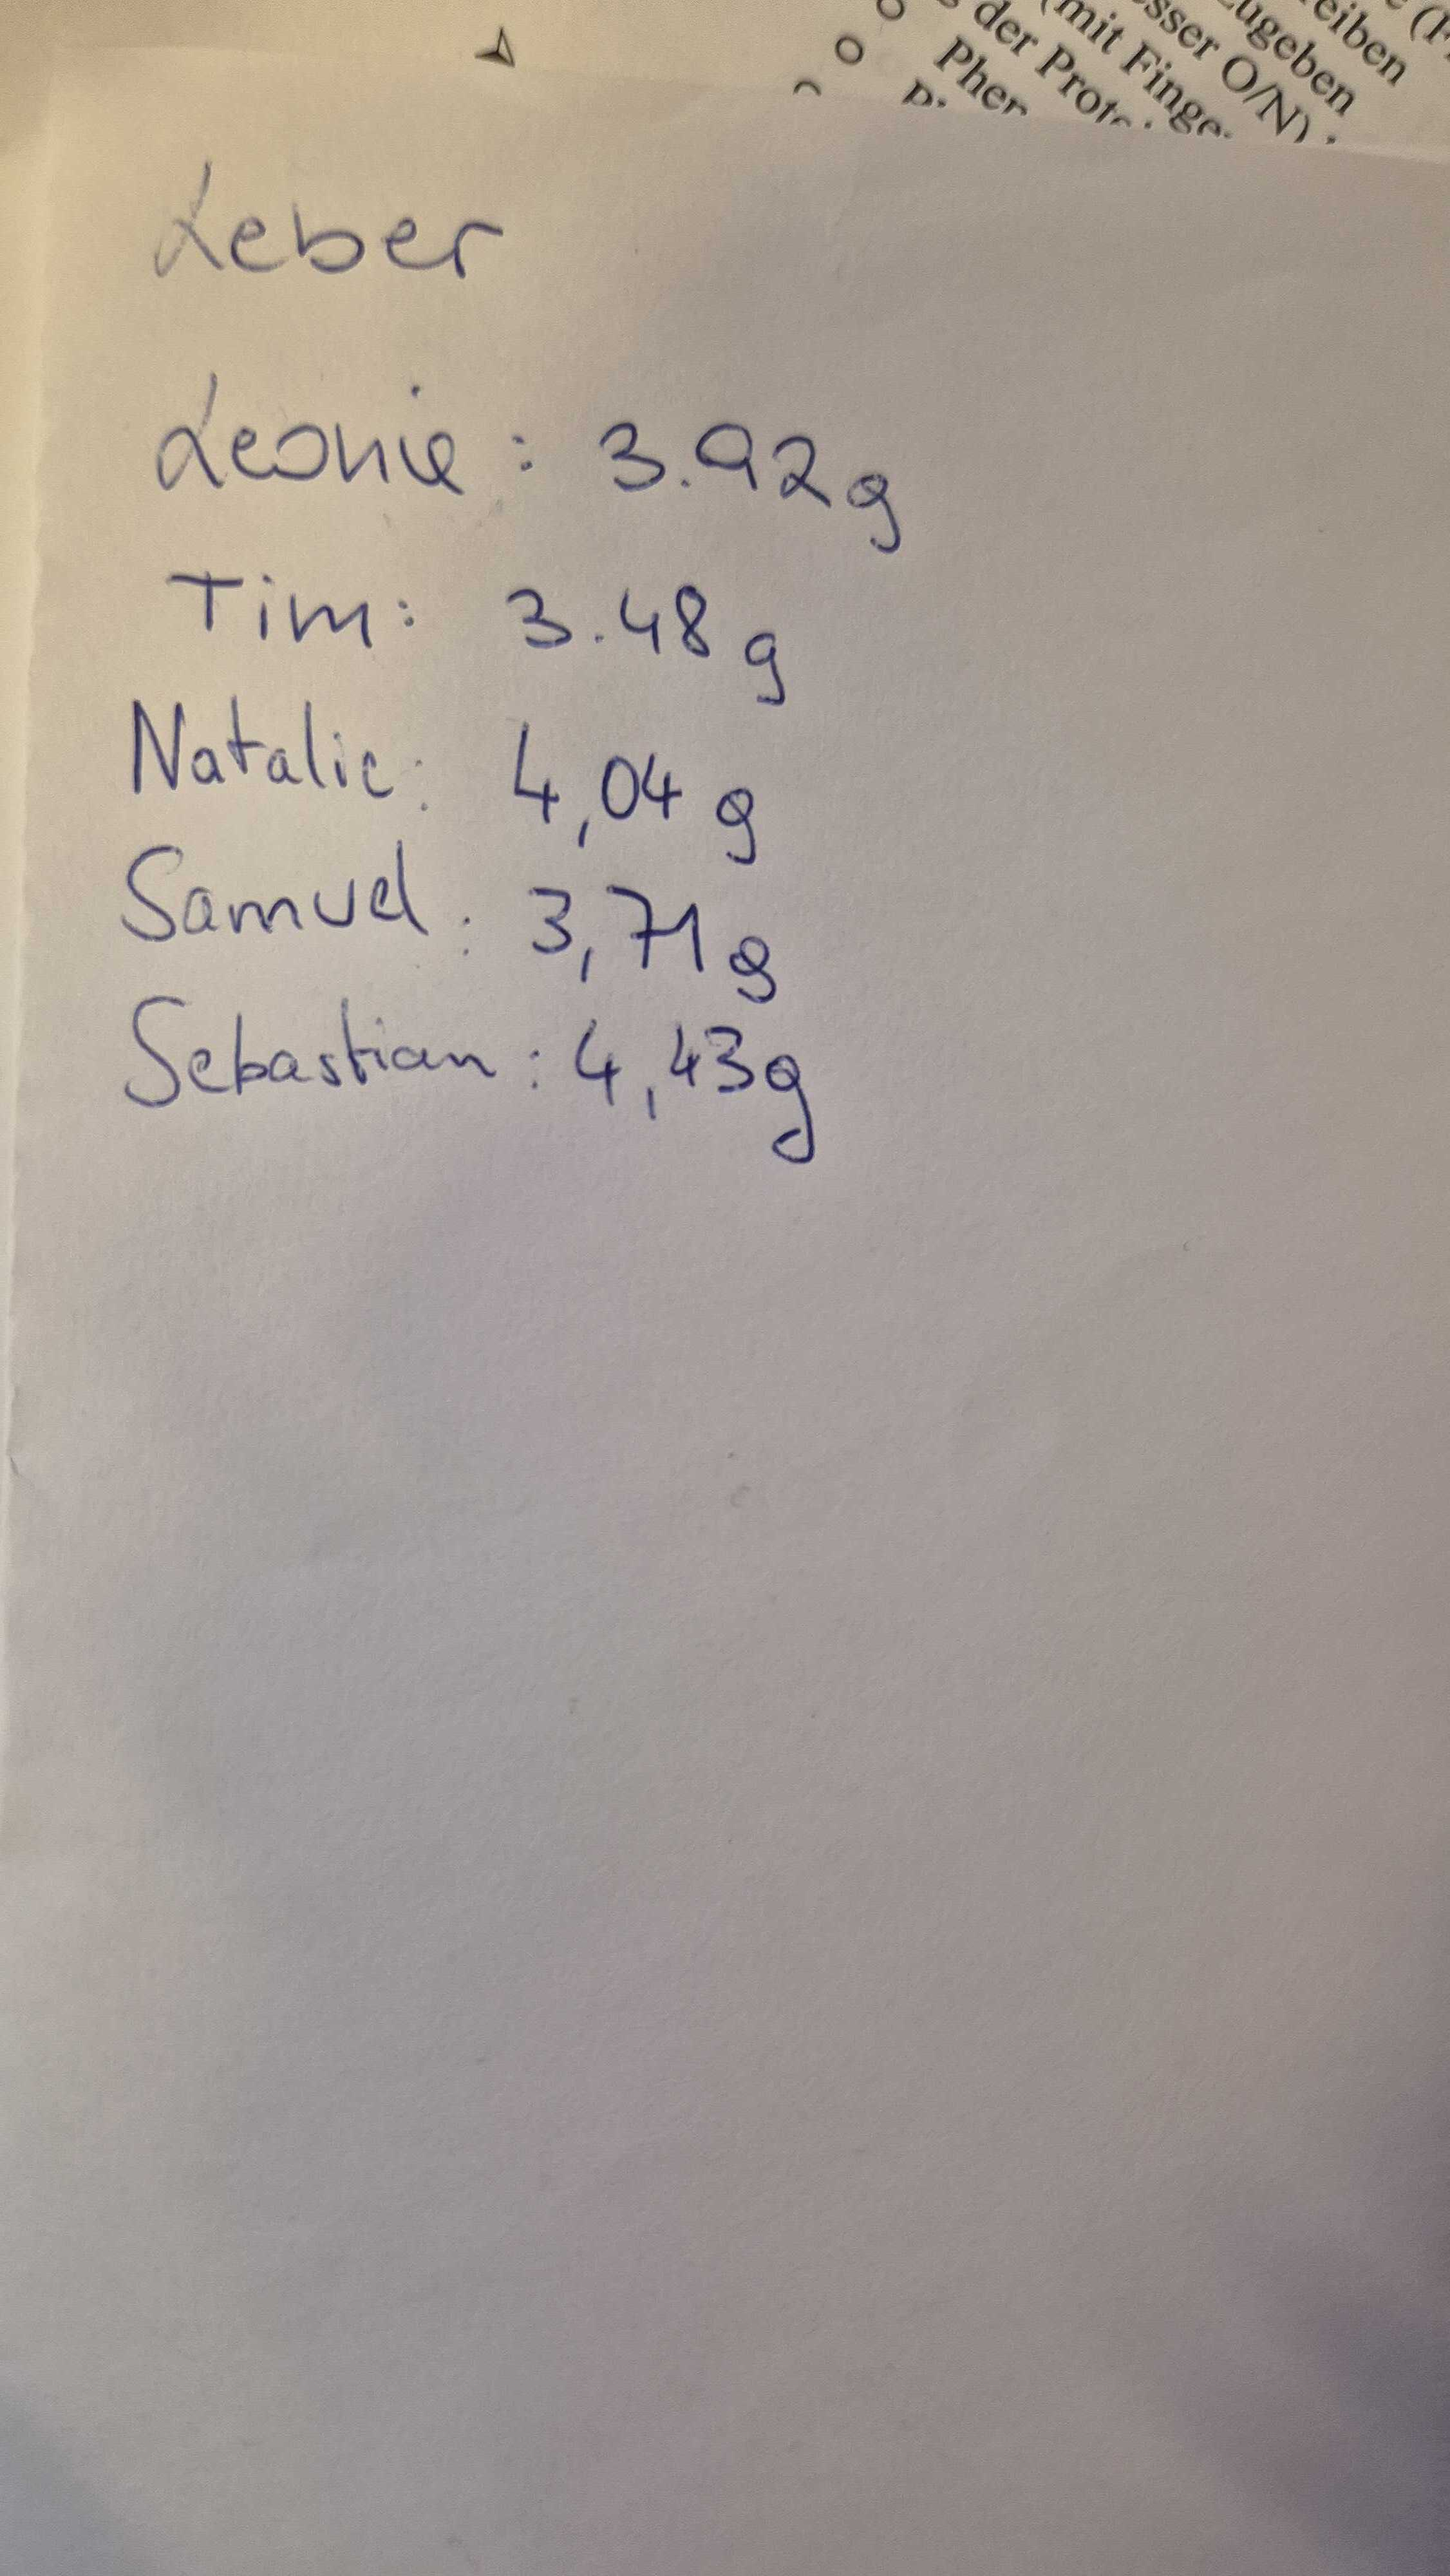 (F
eiben
zugeben
sser O/N)
(mit Finge
der Prot
Phen
Leber
Leonie: 3.92g
Tim: 3.48g
Natalie: 4,04 g
Samuel: 3,71g
Sebastian: 4,43g